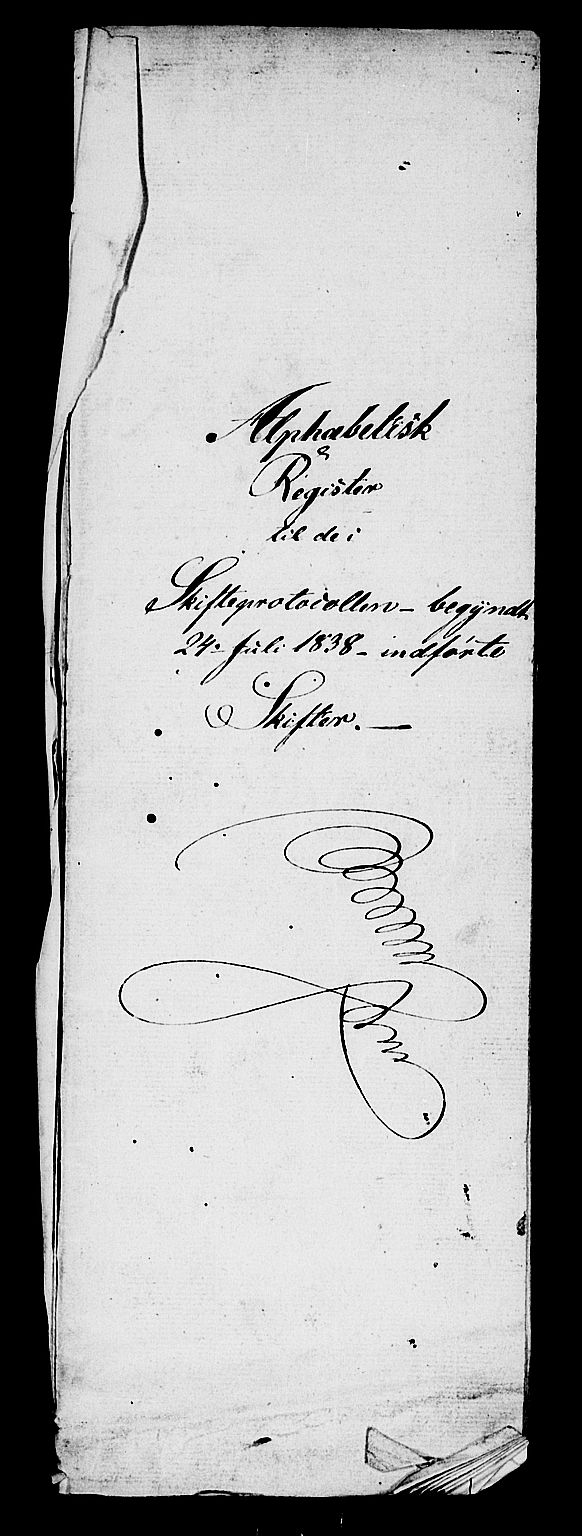 Alphabetisk
Register
til de i
Skifteprotocollen – begyndt
24. Juli 1838 – indførte
Skifter. —